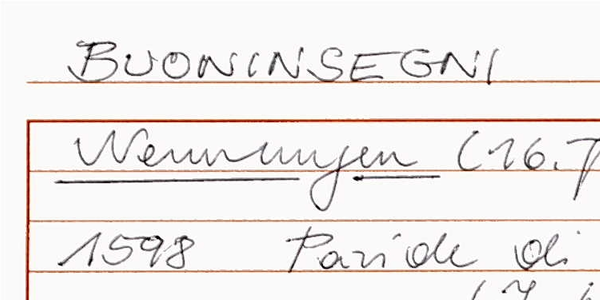 BUONINSEGNI
Nennungen (16.
1598 Paride di